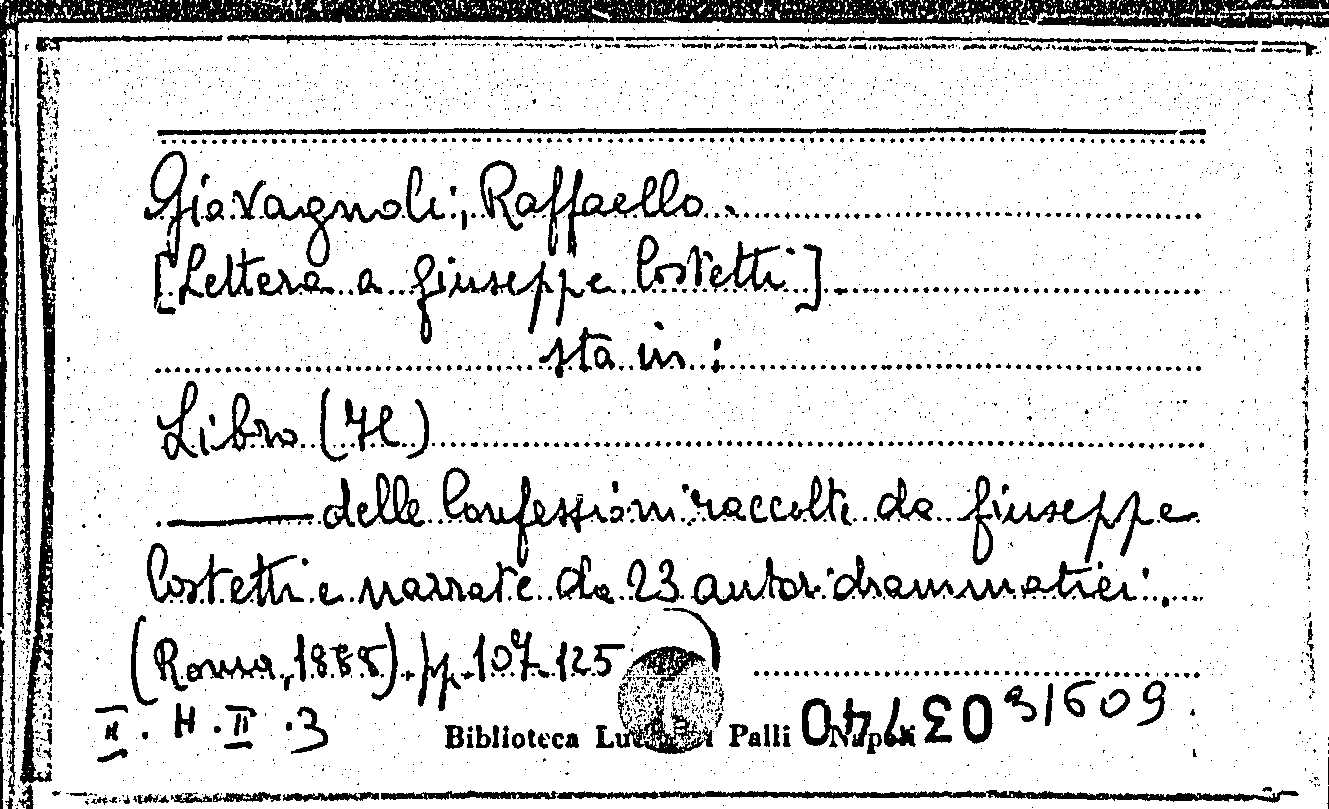 Giovagnoli, Raffaello.
[Lettera a Giuseppe Costetti].
sta in:
Libro (Il)
——— delle Confessioni raccolte da Giuseppe
Costetti e narrate da 23 autori drammatici.
(Roma, 1888). pp. 107-125
II. H. II. 3
Biblioteca Palli Napoli 031609